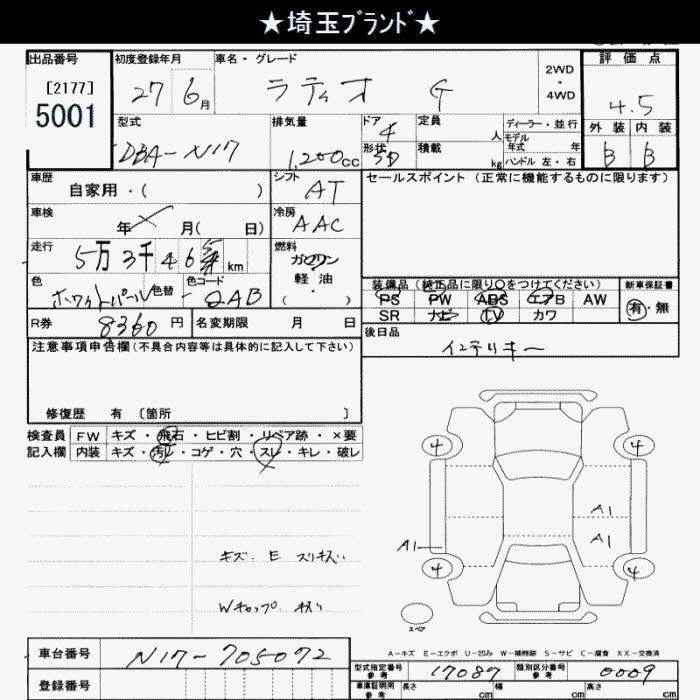 ★埼玉ﾌﾞﾗﾝﾄﾞ★
出品番号 初度登録年月 車名・グレード 2WD・4WD 評価点
[2177]
5001 27 6月 ラティオ G 4.5
型式 排気量 ドア 定員 人 ディーラー・並行 外装 内装
モデル年式 年
DBA-N17 1,200cc 4 形状 5D 積載 kg ハンドル 左・右 B B
車歴 シフト セールスポイント (正常に機能するものに限ります)
自家用・( ) AT
車検 冷房
年 月( 日) AAC
走行 燃料
5万3千46 km ガソリン
軽油
( ・ )
色 色替 色コード
ホワイトパール QAB
装備品 (純正品に限り○をつけてください) 新車保証書
PS PW ABS エアB AW 有・無
SR ナビ TV カワ
R券 8360円 名変期限 月 日 後日品
インテリキー
注意事項申告欄(不具合内容等は具体的に記入して下さい)
修復歴 有 〔箇所 〕
検査員 FW キズ・飛石・ヒビ割・リペア跡・×要
記入欄 内装 キズ・汚レ・コゲ・穴・スレ・キレ・破レ
4 4
A1
A1
A1
4 4
キズ. E スリキズ
Wキャップ キズ
スペア
A-キズ E-エクボ U-凹み W-補修跡 S-サビ C-腐食 XX-交換済
車台番号 N17-705072
登録番号
型式指定番号 参考 17087 類別区分番号 参考 0009
車庫証明用 参考 長さ cm 幅 cm 高さ cm